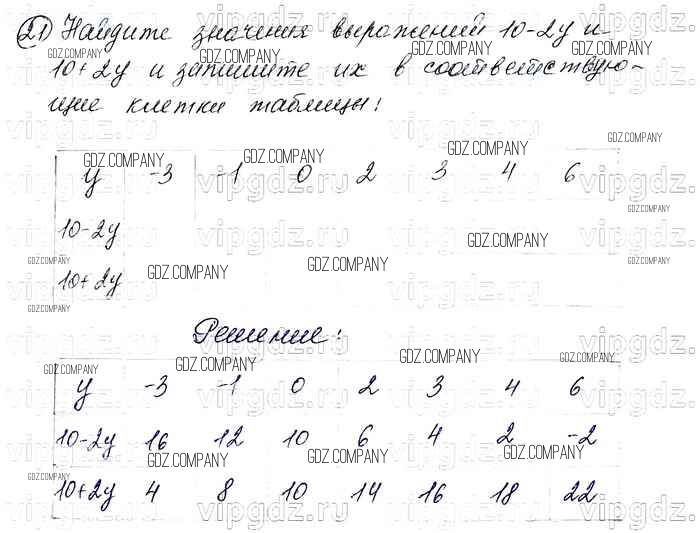 21) Найдите значения выражений 10-2y и
10+2y и запишите их в соответствую-
щие клетки таблицы:
y -3 -1 0 2 3 4 6
10-2y
10+2y
Решение:
y -3 -1 0 2 3 4 6
10-2y 16 12 10 6 4 2 -2
10+2y 4 8 10 14 16 18 22
GDZ.COMPANY
vipgdz.ru